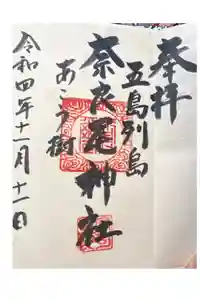 奉拝
五島列島
奈良尾神社
あこう樹
令和四年十一月十一日